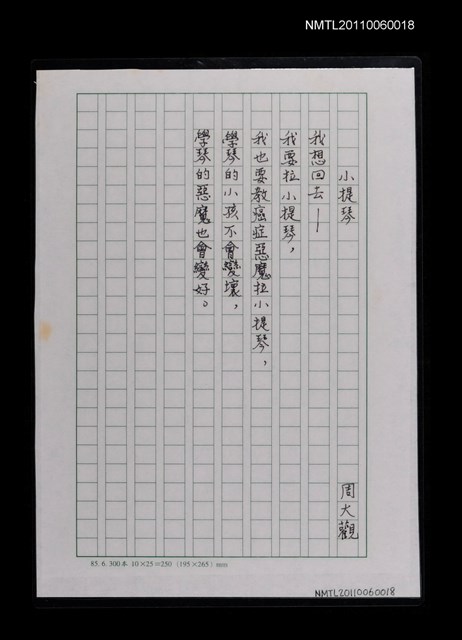 NMTL20110060018
小提琴
周大觀
我想回去——
我要拉小提琴，
我也要教癌症惡魔拉小提琴，
學琴的小孩不會變壞，
學琴的惡魔也會變好。
85. 6. 300本 10×25=250 (195×265) mm
NMTL20110060018